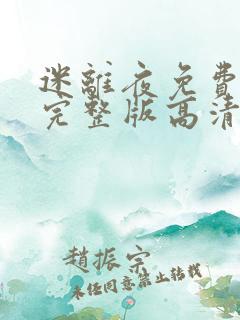 迷離夜免費
完整版高清
趙振宗
未经同意禁止转载